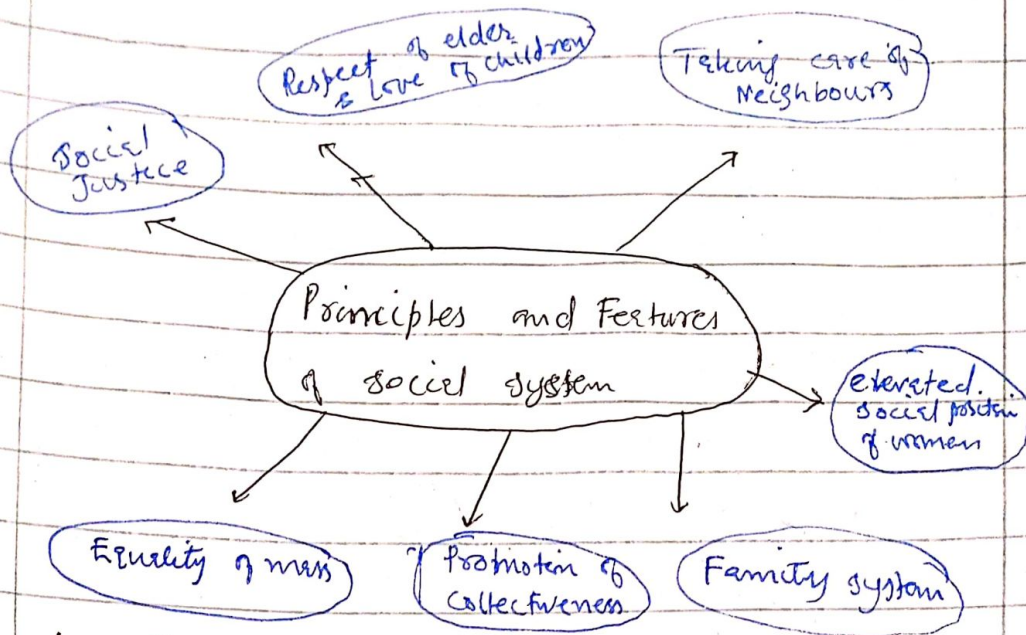 Respect of elder
& Love of children
Taking care of
Neighbours
Social
Justice
Principles and Features
of social system
elevated
social position
of women
Equality of mass
Promotion of
Collectiveness
Family system